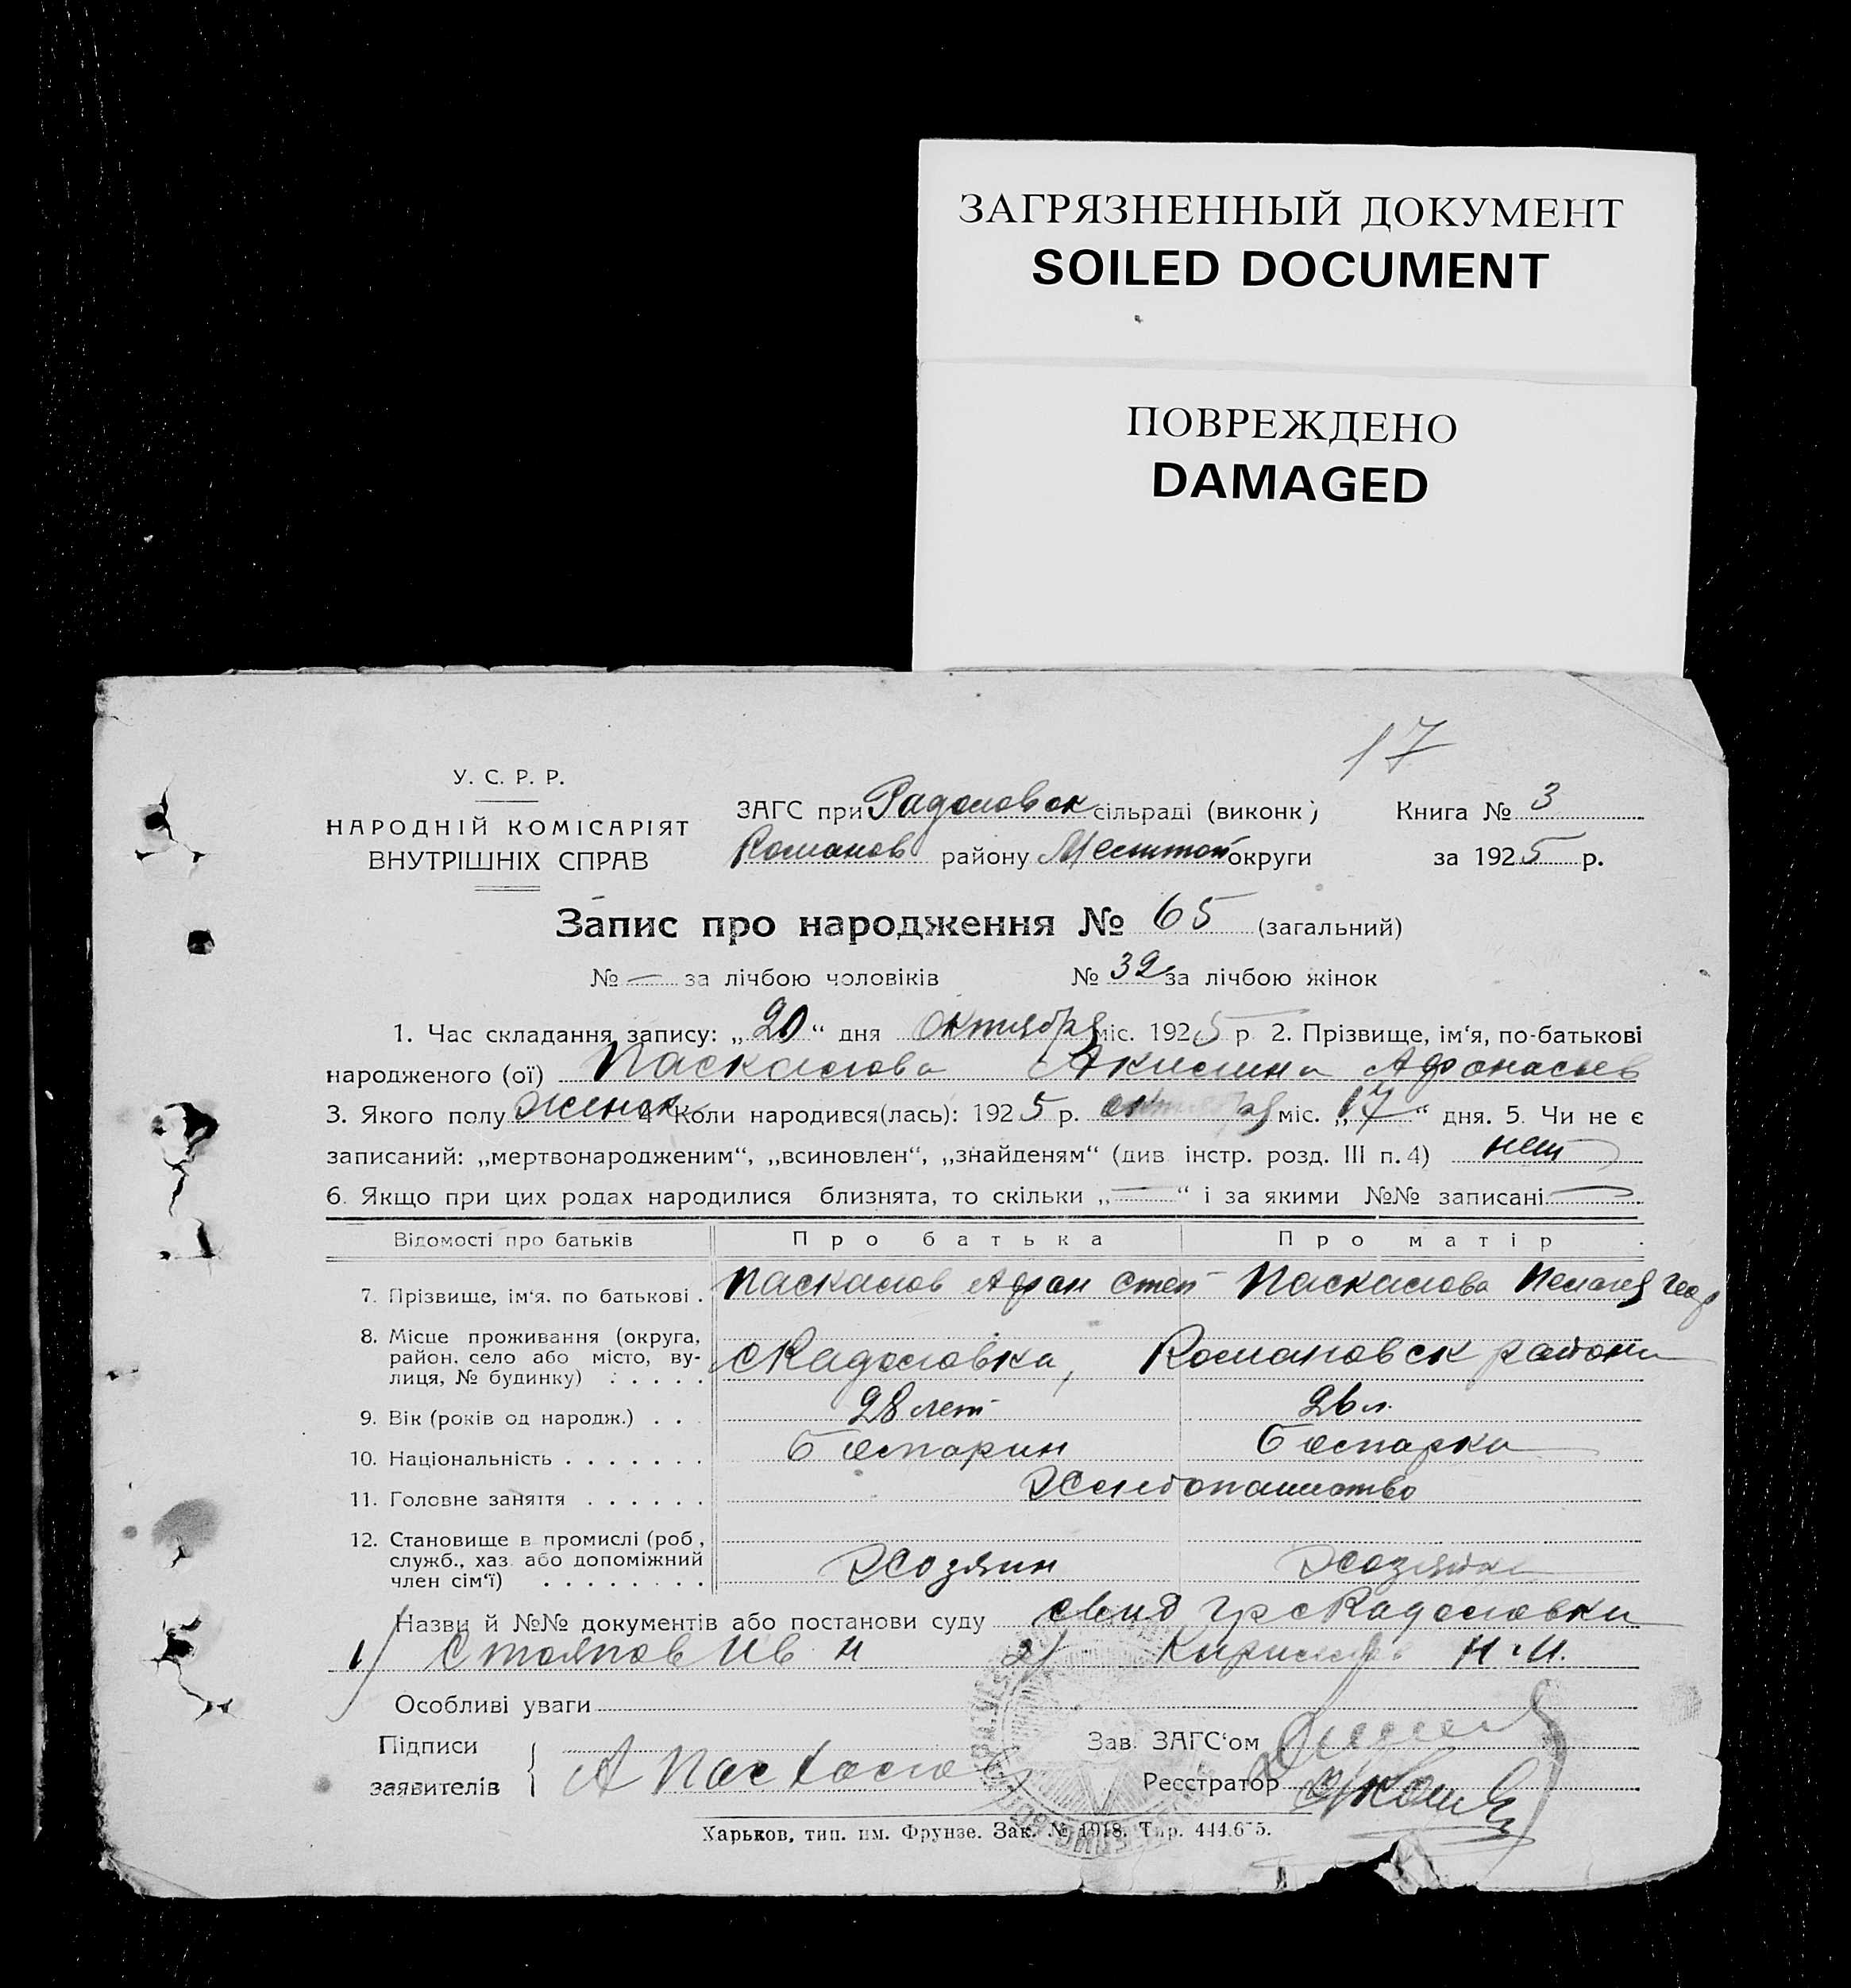 ЗАГРЯЗНЕННЫЙ ДОКУМЕНТ
SOILED DOCUMENT
ПОВРЕЖДЕНО
DAMAGED
17
У. С. Р. Р.
НАРОДНІЙ КОМІСАРІЯТ
ВНУТРІШНІХ СПРАВ
ЗАГС при Радоловск сільраді (виконк) Книга № 3
Романов району Мелитоп округи за 1925 р.
Запис про народження № 65 (загальний)
№ — за лічбою чоловіків № 32 за лічбою жінок
1. Час складання запису: „20“ дня октября міс. 1925 р 2. Прізвище, ім‘я, по-батькові
народженого (ої) Паскалова Акилина Афонасьев
3. Якого полу женск 4 Коли народився(лась): 1925 р. октября міс. „17“ дня. 5. Чи не є
записаний: „мертвонародженим“, „всиновлен“, „знайденям“ (див інстр. розд. III п. 4) нет
6. Якщо при цих родах народилися близнята, то скільки „—“ і за якими №№ записані —
Відомості про батьків Про батька Про матір
7. Прізвище, ім‘я. по батькові . Паскалов Афан Степ Паскалова Пелагея Геор
8. Місце проживання (округа,
район. село або місто, ву-
лиця, № будинку) . . . . . с Радоловка, Романовск района
9. Вік (років од народж.) . . . 28 лет 26 л.
10. Національність . . . . . . . Болгарин Болгарка
11. Головне заняття . . . . . . Хлебопашество
12. Становище в промислі (роб,
служб., хаз. або допоміжний
член сім‘ї) . . . . . . . . Хозяин Хозяйка
Назви й №№ документів або постанови суду свид гр с Радоловки
1/ Стоянов Ив Н 2/ Кирилов Н. И.
Особливі уваги
Підписи
заявителів А Паскалов
Зав. ЗАГС‘ом
Реєстратор
Харьков, тип. им. Фрунзе. Зак. № 1918. Тир. 444.675.